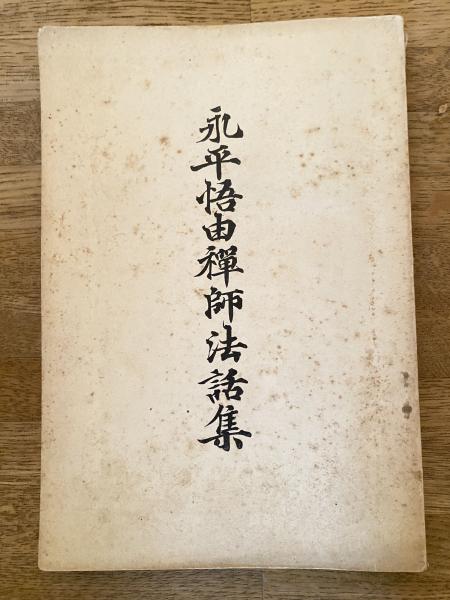 永平悟由禪師法話集